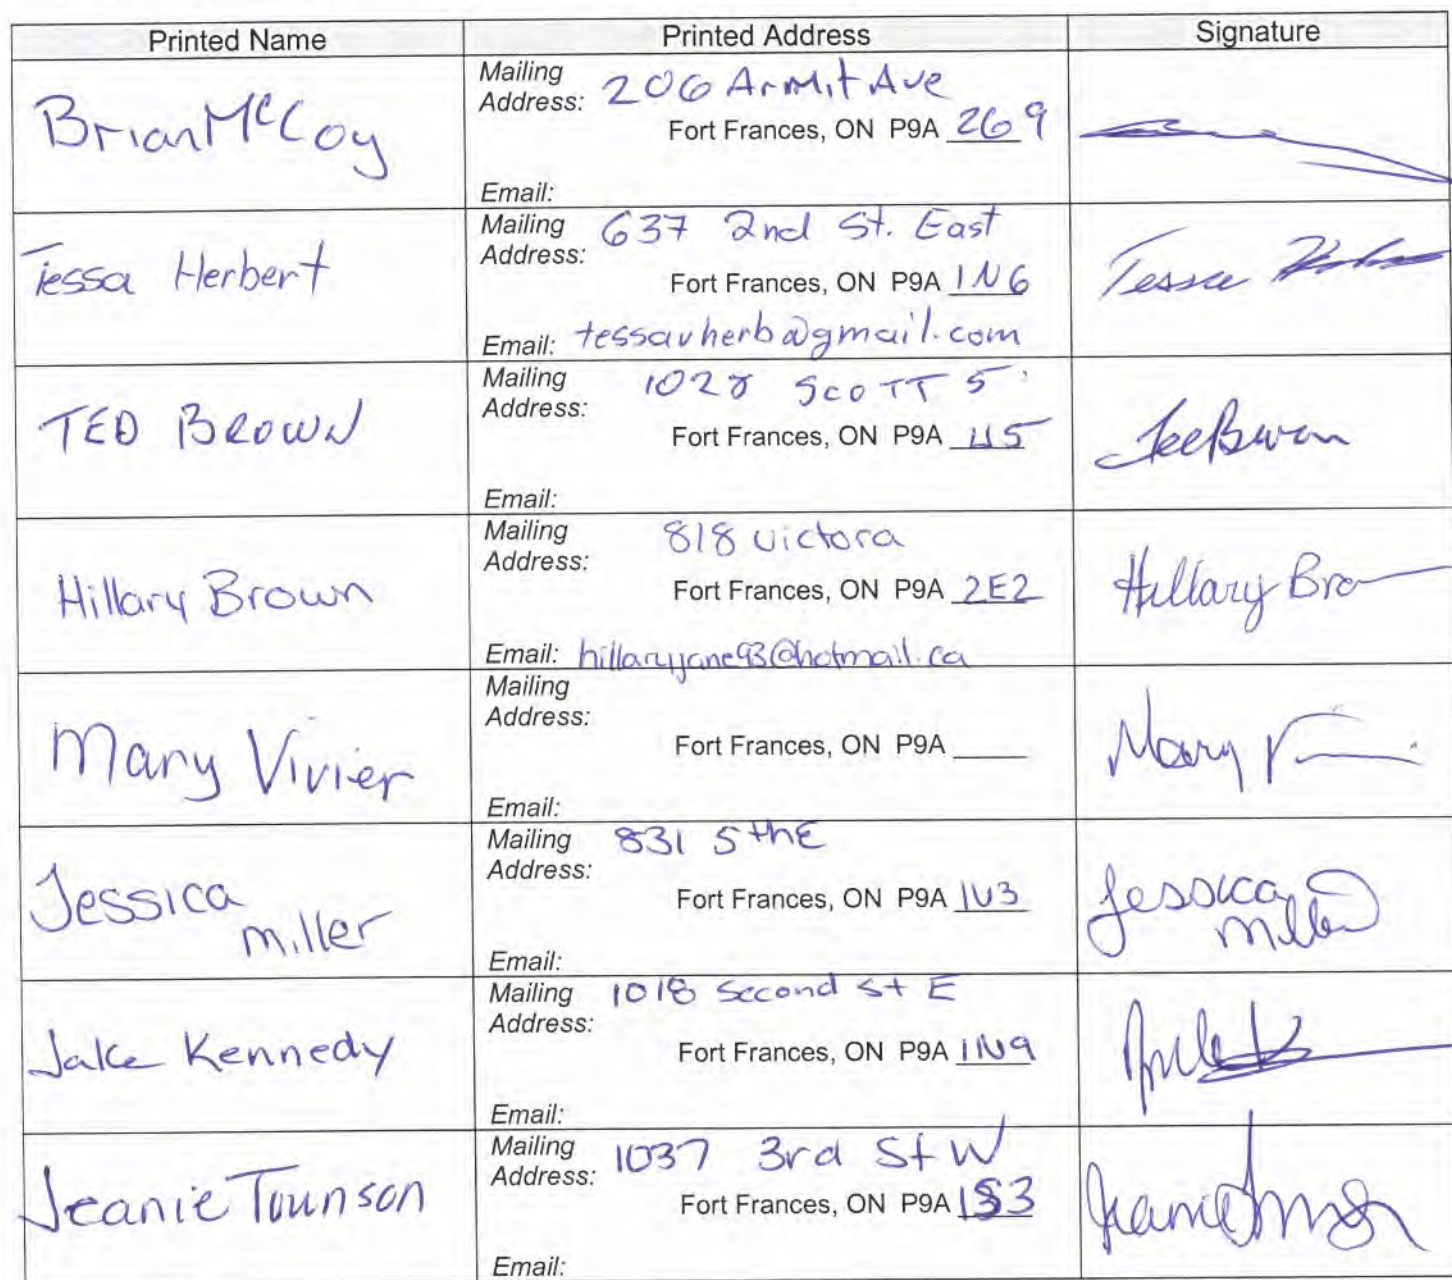 Printed Name Printed Address Signature
Brian McCoy
Mailing Address: 206 Armit Ave
Fort Frances, ON P9A 2G9
Email:
Tessa Herbert
Mailing Address: 637 2nd St. East
Fort Frances, ON P9A 1N6
Email: tessavherb@gmail.com
Tessa
TED BROWN
Mailing Address: 1028 SCOTT S
Fort Frances, ON P9A
Email:
Hillary Brown
Mailing Address: 818 victora
Fort Frances, ON P9A 2E2
Email: hillaryjane93@hotmail.ca
Hillary Bro
Mary Vivier
Mailing Address:
Fort Frances, ON P9A
Email:
Mary
Jessica
miller
Mailing Address: 831 5thE
Fort Frances, ON P9A 1V3
Email:
Jessica
Miller
Jake Kennedy
Mailing Address: 1018 Second St E
Fort Frances, ON P9A 1N9
Email:
Jeanie Tounson
Mailing Address: 1037 3rd St W
Fort Frances, ON P9A 1S3
Email: